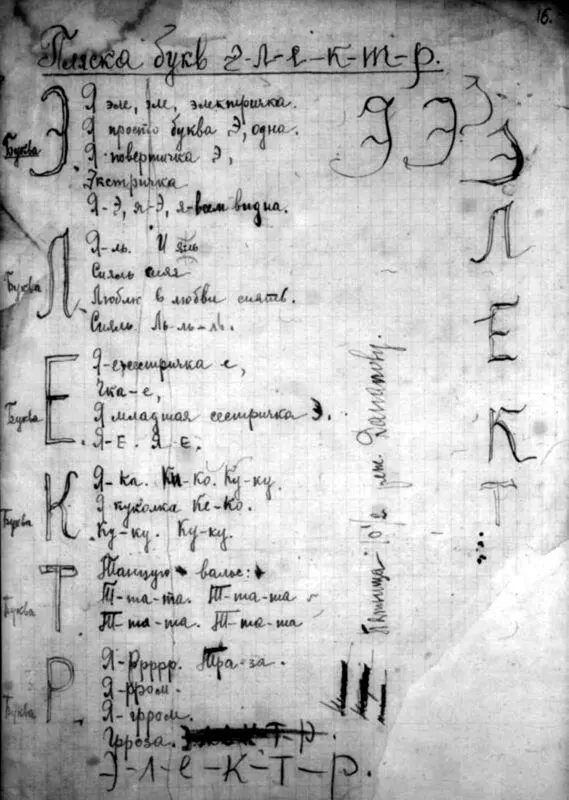 16.
Пляска букв э-л-е-к-т-р.
Буква Э
Я эле, эле, электричка.
Я просто буква Э, одна.
Я поверничка Э,
Экстричка
Я-Э, я-Э, я-всем видна.
Буква Л
Я-ль. И эль
Сияль сияя
Люблю в любви сиять.
Сияль Ль-ль-ль.
Буква Е
Я-сестричка е,
Чка-е,
Я младшая сестричка Э.
Я-Е. Я-Е.
Буква К
Я-ка. Ки-ко. Ку-ку.
Я куколка Ке-ко.
Ку-ку. Ку-ку.
Буква Т
Танцую вальс:
Т-та-та. Т-та-та
Т-та-та. Т-та-та
Буква Р
Я-Ррррр. Тра-за.
Я-рром.
Я-грром.
Грроза.
Э-л-е-к-т-р.
Э Э Э
Э
Л
Е
К
Т
Пятница